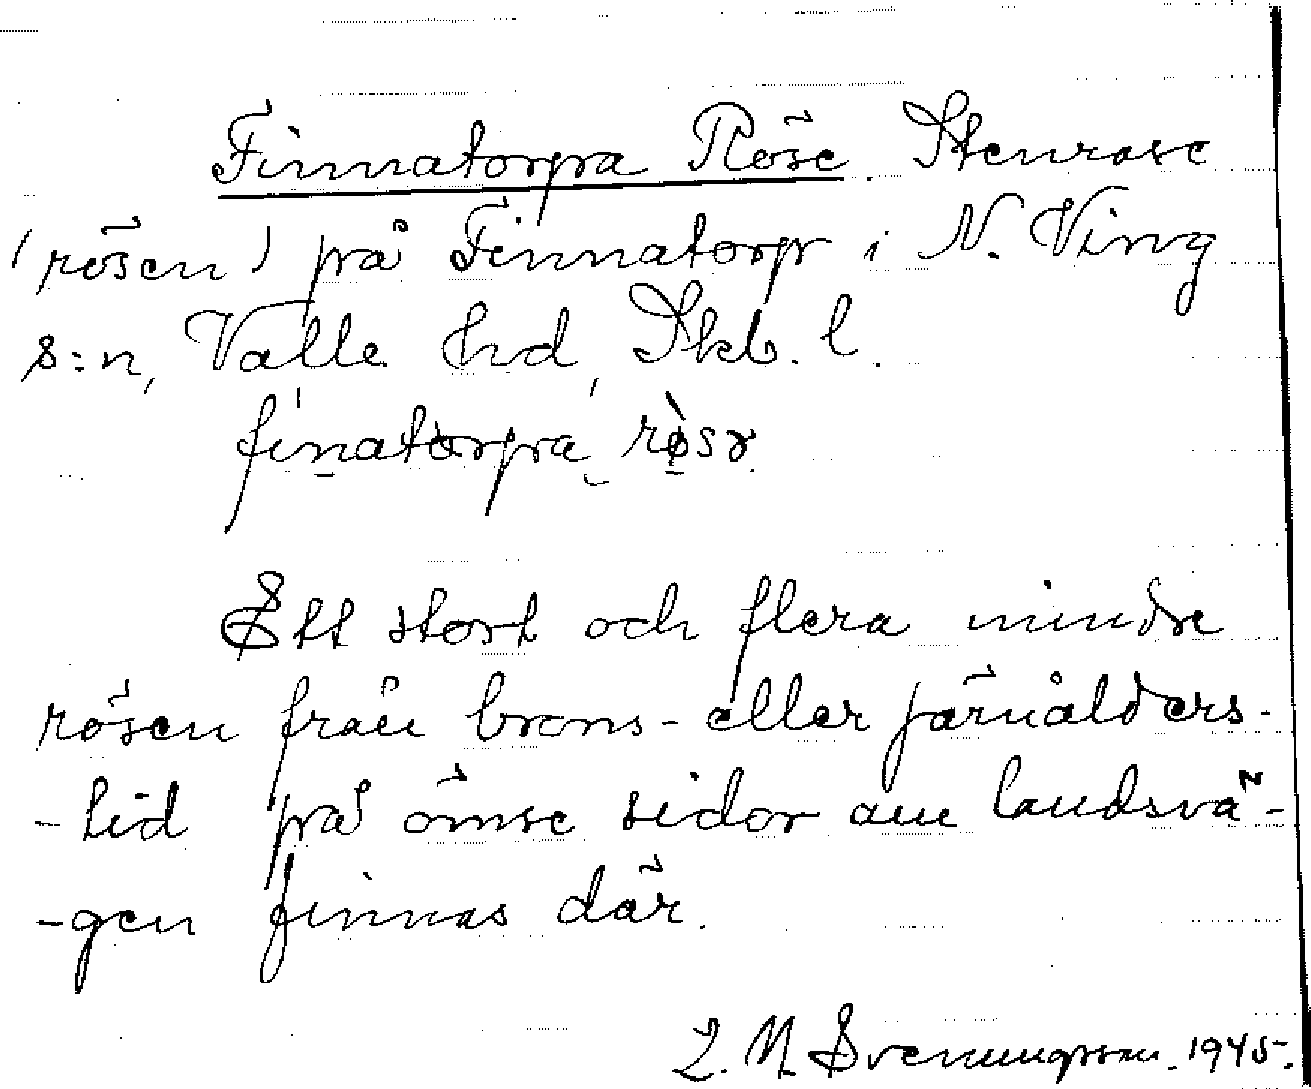 Finnatorpa Röse. Stenrose
(rösen) på Finnatorp i N. Ving
s:n, Valle hd, Skb. l.
finatorpa rösr.
Ett stort och flera mindre
rösen från brons- eller järnålders-
-tid på ömse sidor am landsvä-
-gen finnas där.
L. M. Svenungsson. 1945.